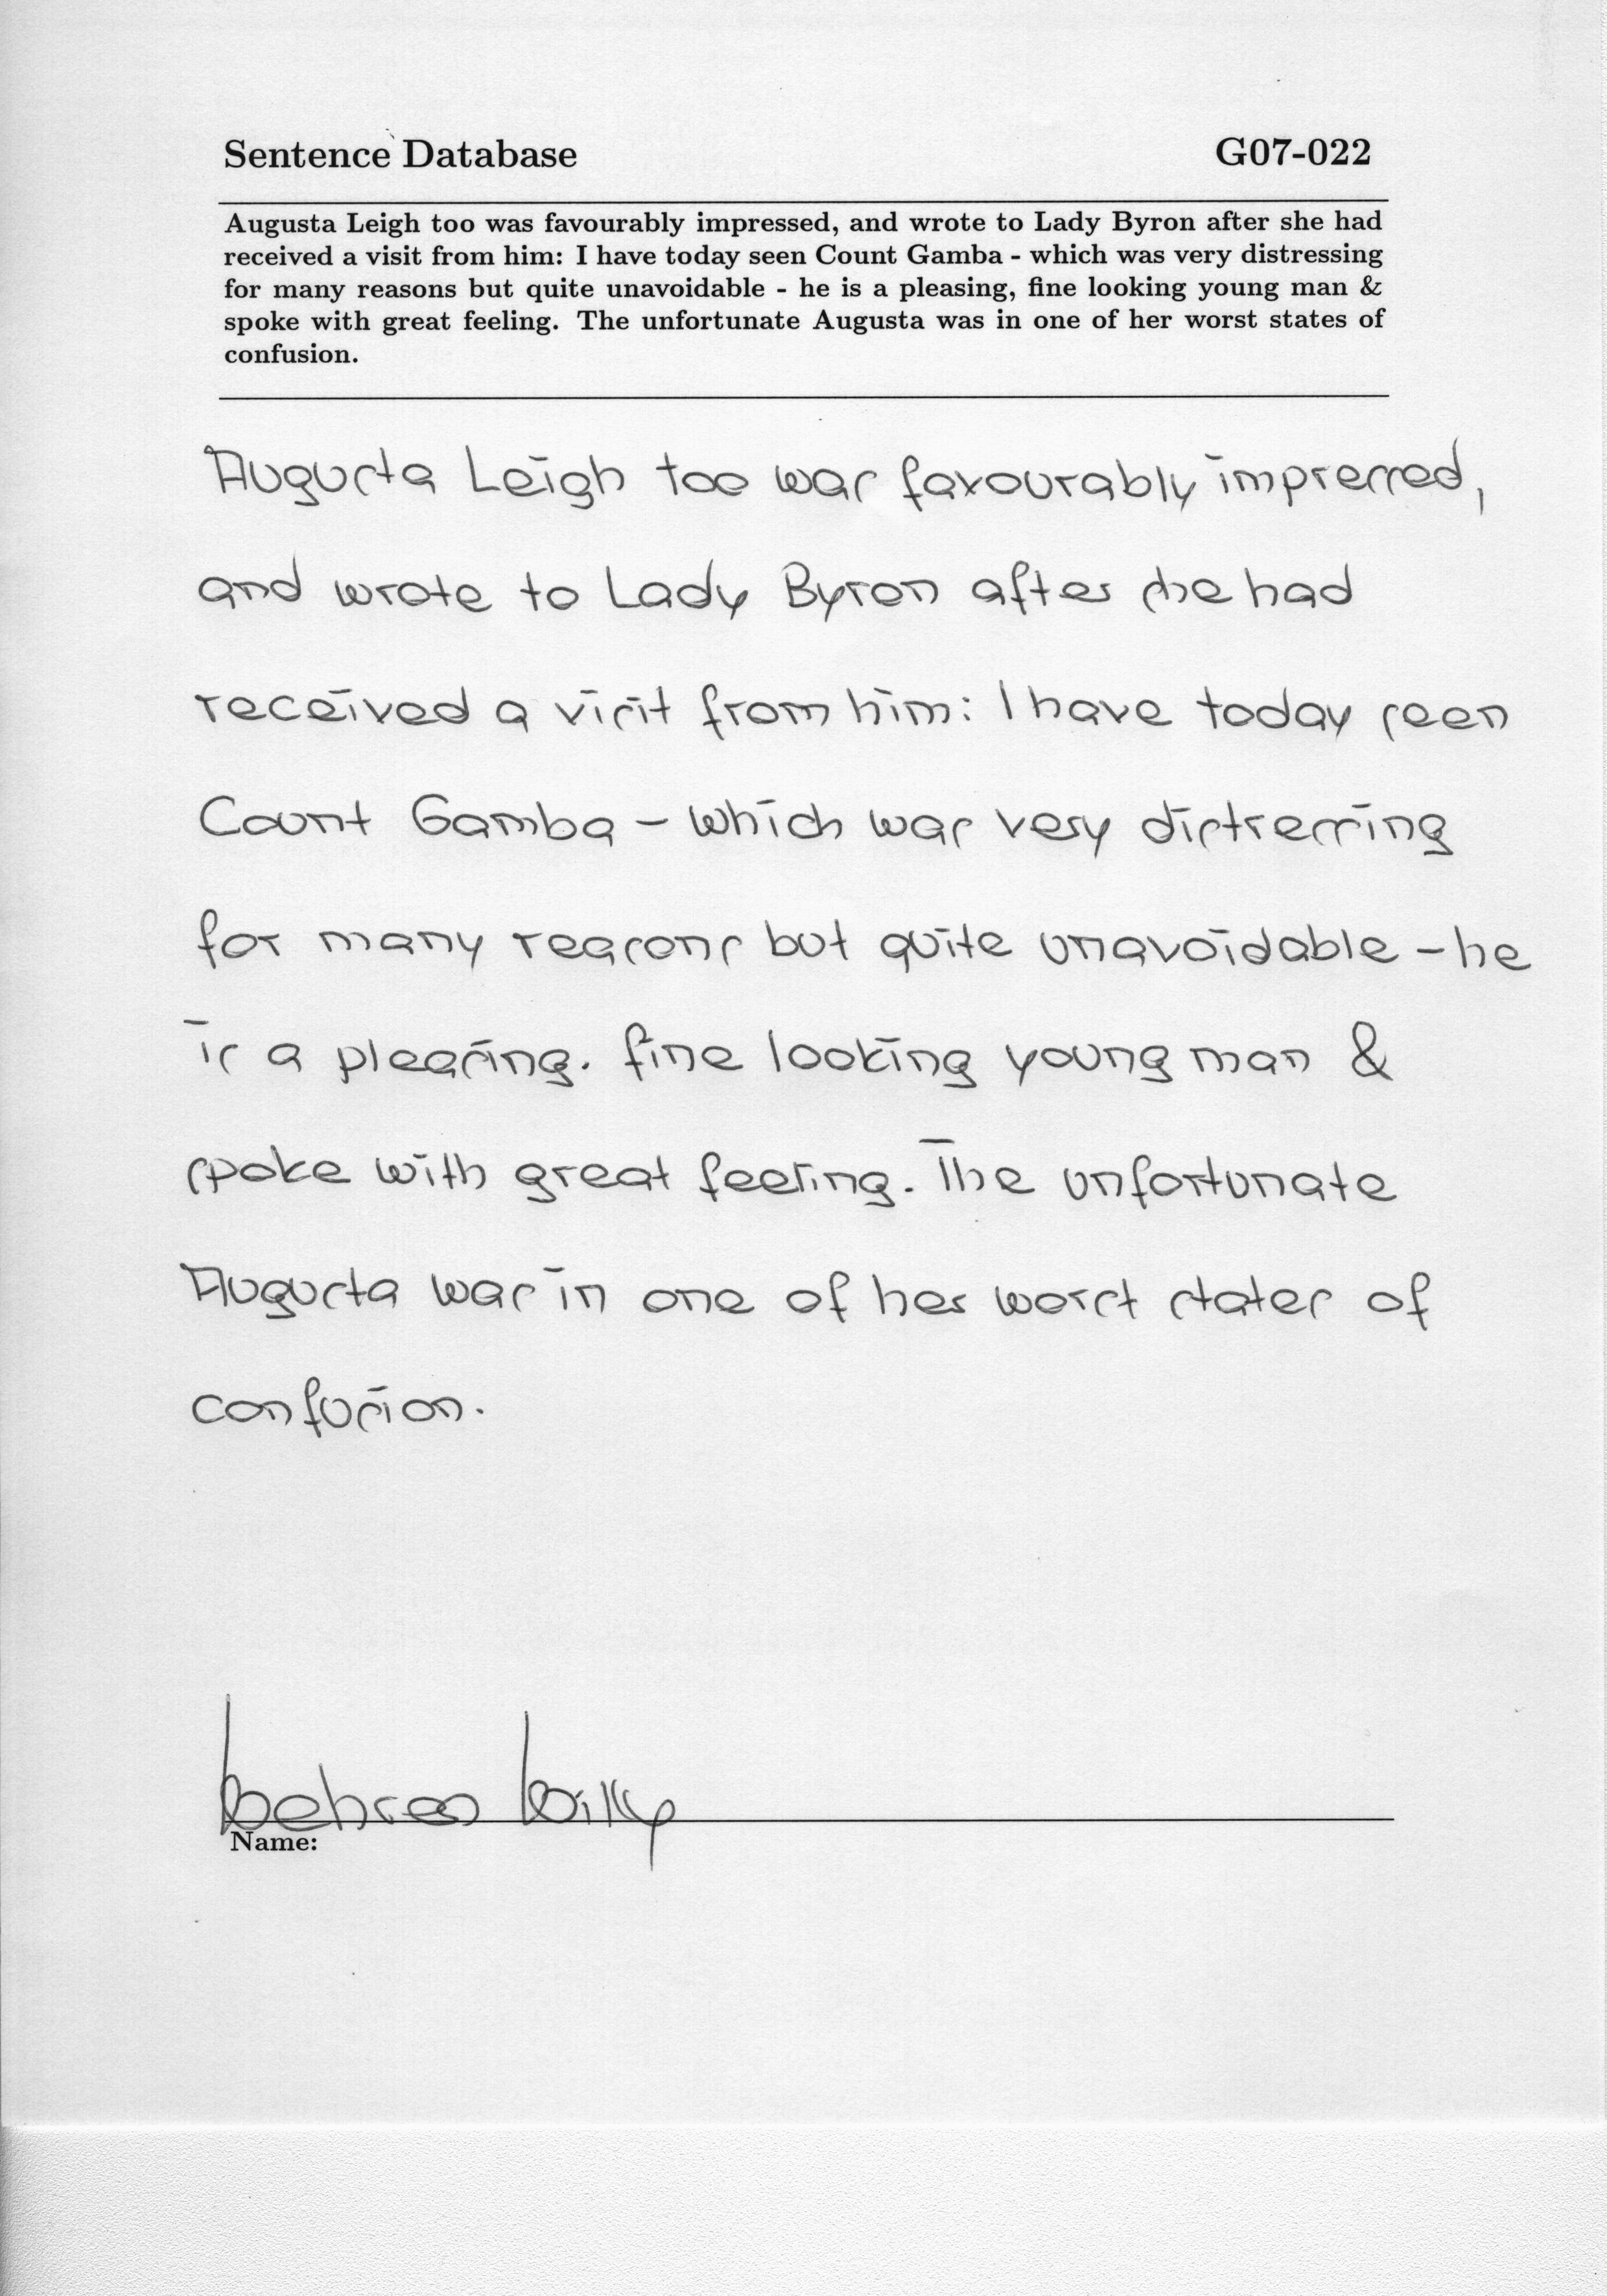 Sentence Database G07-022
Augusta Leigh too was favourably impressed, and wrote to Lady Byron after she had
received a visit from him: I have today seen Count Gamba - which was very distressing
for many reasons but quite unavoidable - he is a pleasing, fine looking young man &
spoke with great feeling. The unfortunate Augusta was in one of her worst states of
confusion.
Augusta Leigh too was favourably impressed,
and wrote to Lady Byron after she had
received a visit from him: I have today seen
Count Gamba - which was very distressing
for many reasons but quite unavoidable - he
is a pleasing. fine looking young man &
spoke with great feeling. The unfortunate
Augusta was in one of her worst states of
confusion.
Name: